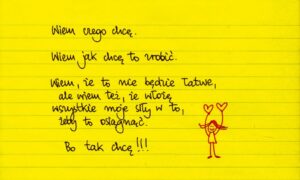 Wiem czego chcę.
Wiem jak chcę to zrobić.
Wiem, że to nie będzie łatwe,
ale wiem też, że włożę
wszystkie moje siły w to,
żeby to osiągnąć.
Bo tak chcę!!!